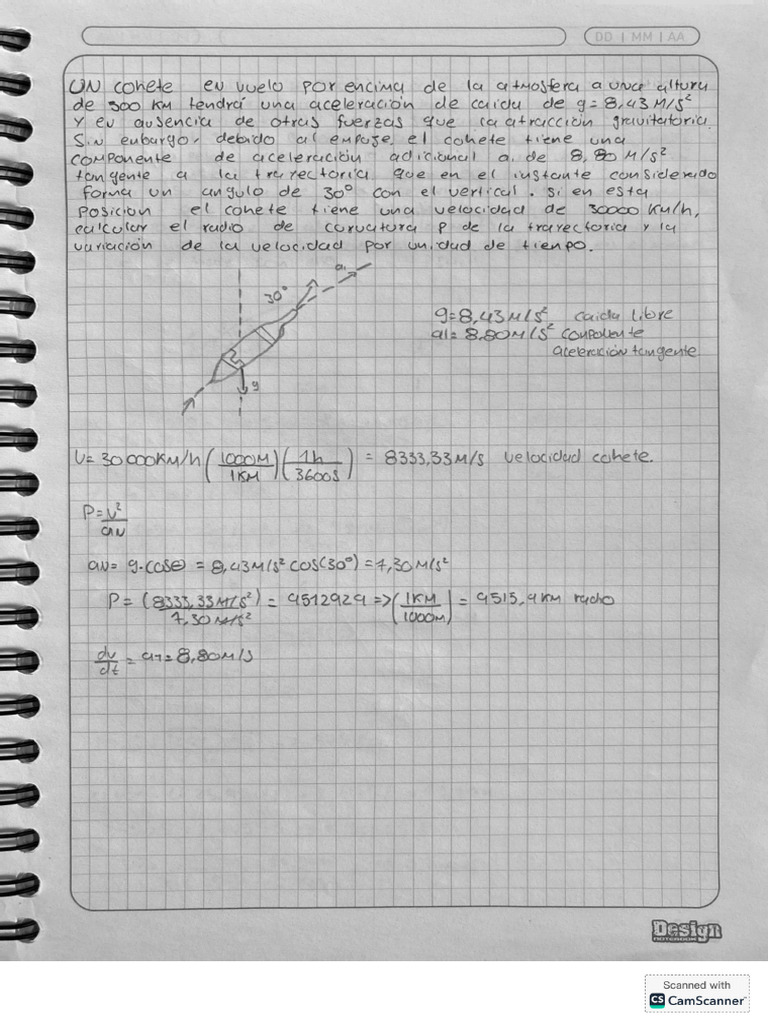 DD | MM | AA
UN cohete en vuelo por encima de la atmosfera a una altura
de 300 KM tendrá una aceleración de caida de g=8,43 M/s²
Y en ausencia de otras fuerzas que la atracción gravitatoria.
Sin enbargo, debido al empuje, el cohete tiene una
componente de aceleración adicional a₁ de 8,80 M/s²
tangente a la trayectoria que en el instante considerado
forma un angulo de 30° con el vertical. Si en esta
posicion el cohete tiene una velocidad de 30000 Km/h,
calcular el radio de corvatura P de la trayectoria y la
variación de la velocidad por unidad de tienpo.
a₁
30°
g=8,43 M/s² caida libre
a1=8.80 M/s² componente
aceleración tangente
g
V=30000KM/h (1000M/1KM)(1h/3600s) = 8333,33 M/s velocidad cohete.
P=V²/an
an= g.cosθ = 8,43M/s² cos(30°)=7,30 M/s²
P= (8333,33M/s²)/7,30 M/s² = 9512929 => (1KM/1000M) = 9515,9 KM radio
dv/dt = aT= 8,80M/s
Design
NOTEBOOK
Scanned with
CS CamScanner